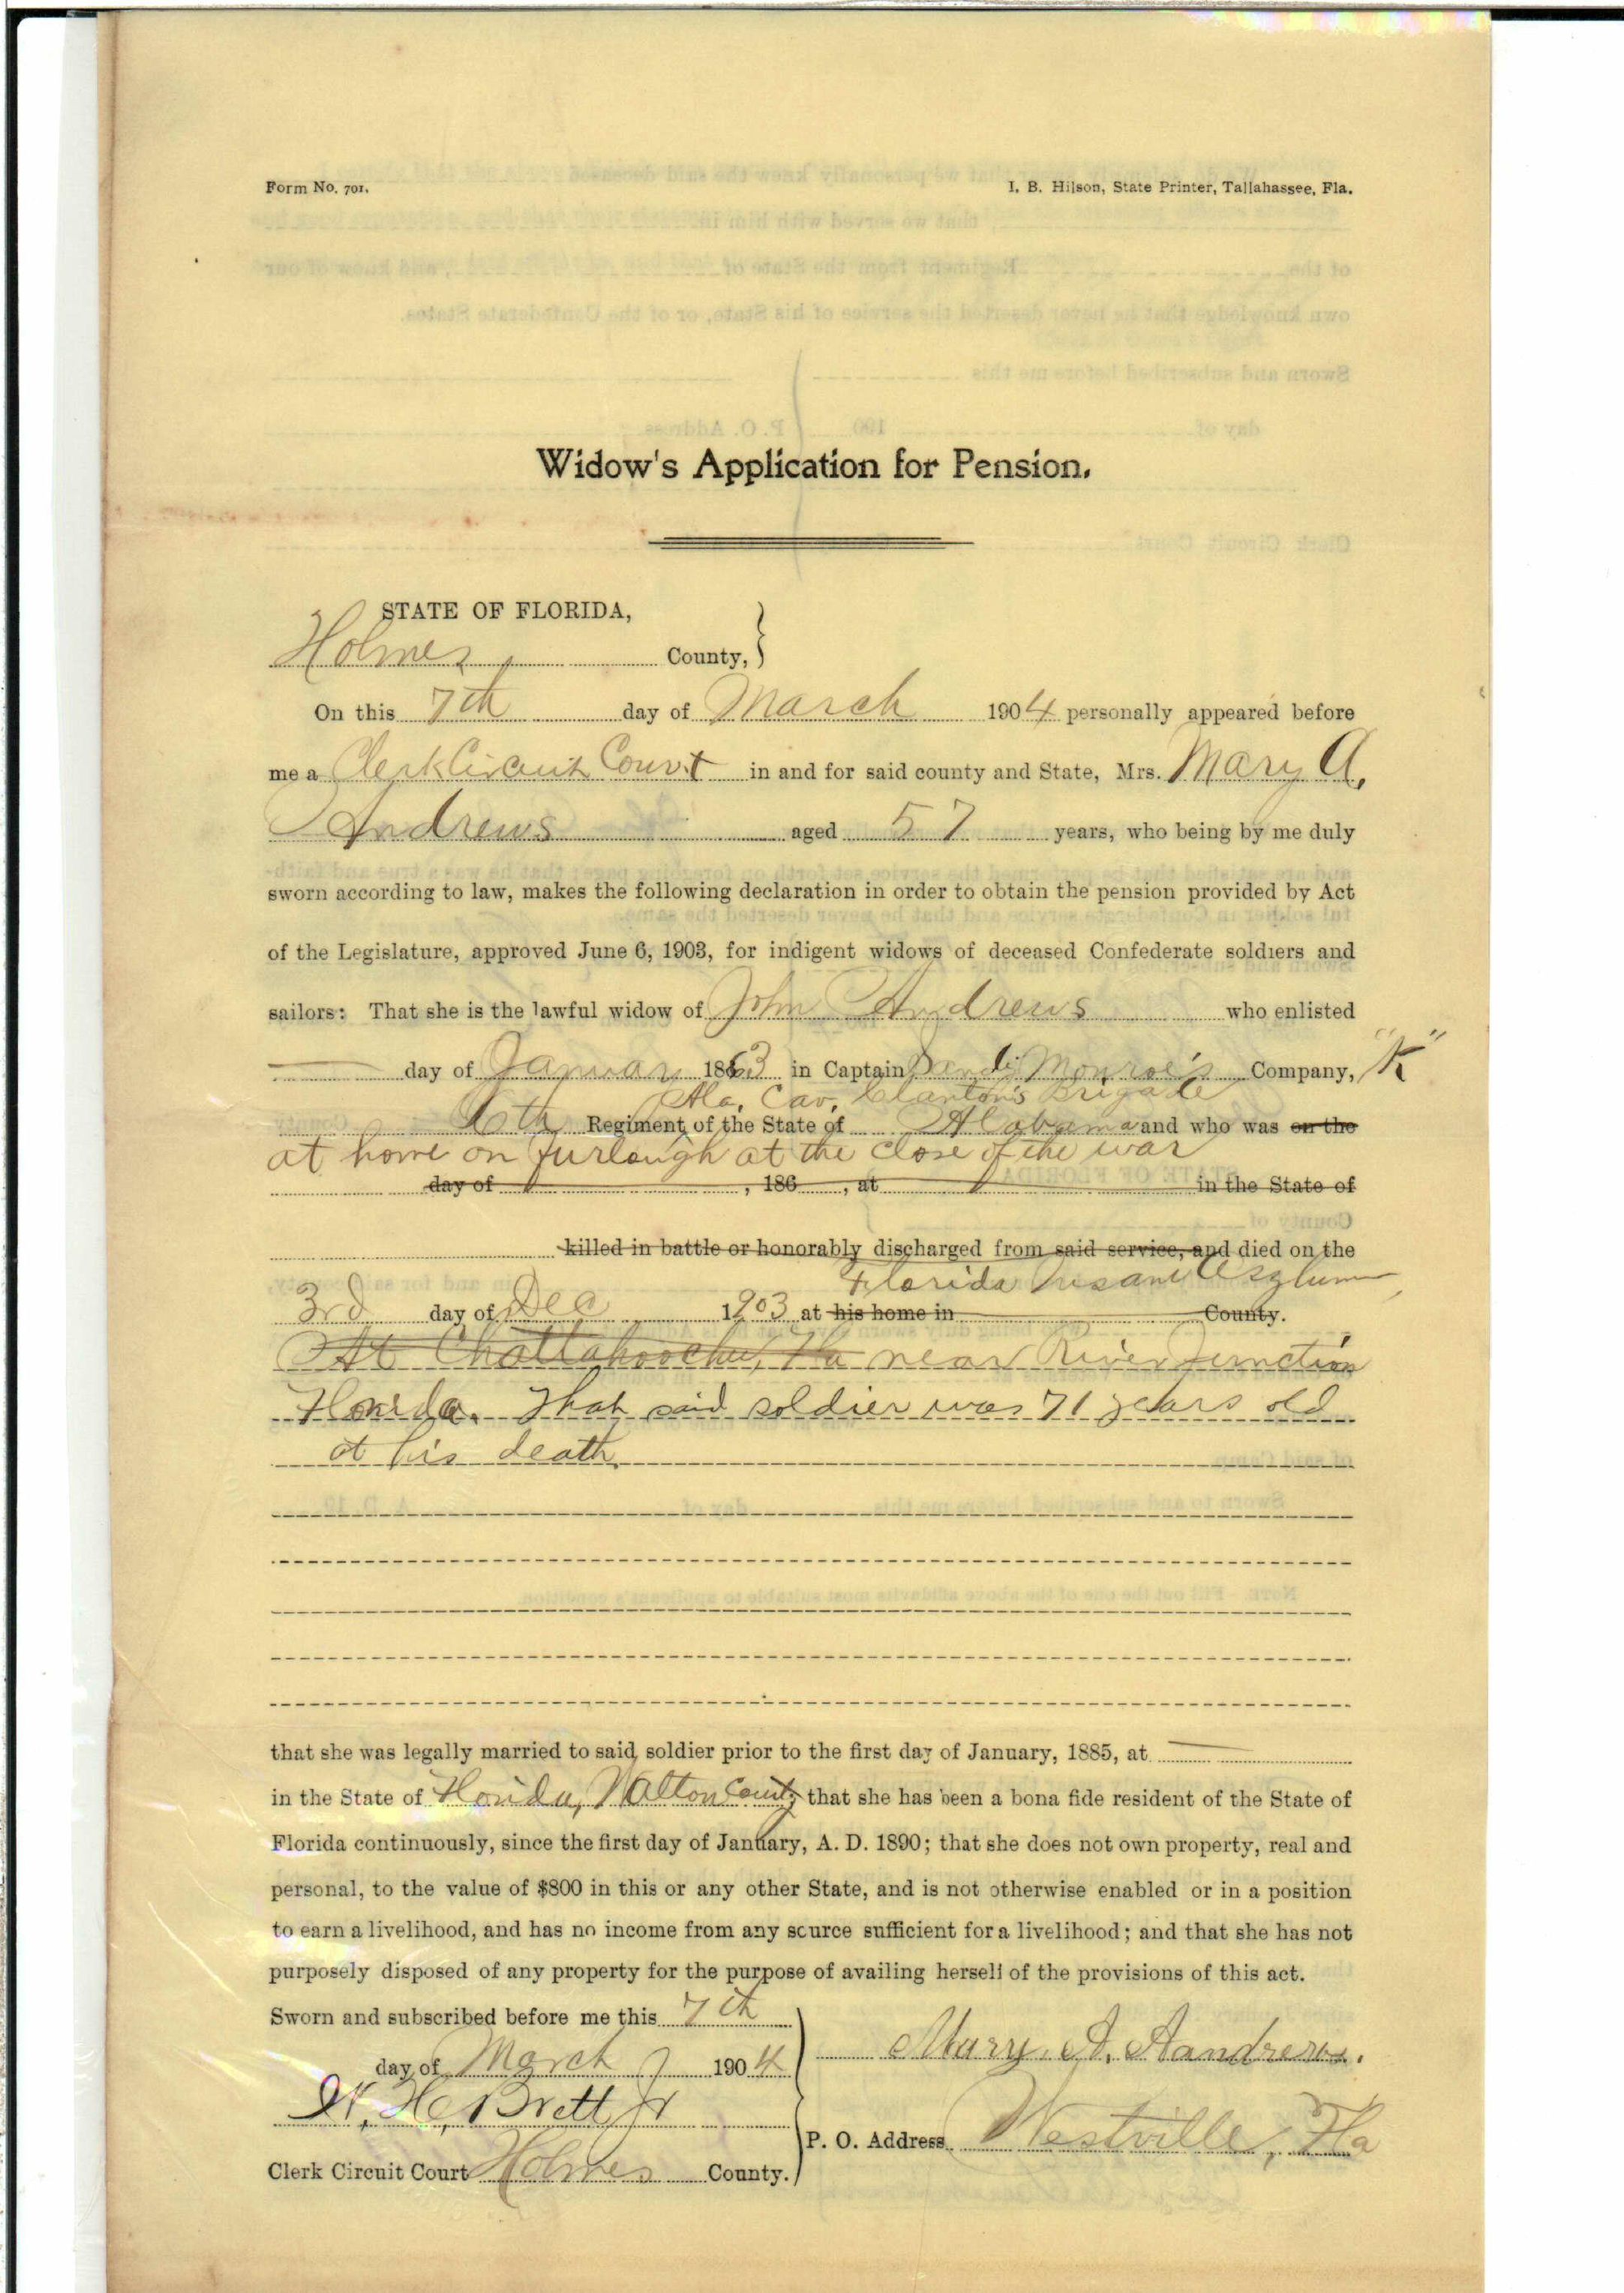 Form No. 701.
I. B. Hilson, State Printer, Tallahassee, Fla.
Widow's Application for Pension.
STATE OF FLORIDA,
Holmes County, }
On this 7th day of March 1904 personally appeared before
me a Clerk Circuit Court in and for said county and State, Mrs. Mary A.
Andrews aged 57 years, who being by me duly
sworn according to law, makes the following declaration in order to obtain the pension provided by Act
of the Legislature, approved June 6, 1903, for indigent widows of deceased Confederate soldiers and
sailors: That she is the lawful widow of John Andrews who enlisted
day of January 1863 in Captain Monroe's Company, "K"
Ala. Cav. Clanton's Brigade
6th Regiment of the State of Alabama and who was on the
at home on furlough at the close of the war
day of , 186 , at in the State of
killed in battle or honorably discharged from said service, and died on the
Florida Insane Asylum
3rd day of Dec 1903 at his home in County.
At Chattahoochee, Fla near River Junction
Florida. That said soldier was 71 years old
at his death.
that she was legally married to said soldier prior to the first day of January, 1885, at
in the State of Florida, Walton County that she has been a bona fide resident of the State of
Florida continuously, since the first day of January, A. D. 1890; that she does not own property, real and
personal, to the value of $800 in this or any other State, and is not otherwise enabled or in a position
to earn a livelihood, and has no income from any source sufficient for a livelihood; and that she has not
purposely disposed of any property for the purpose of availing herself of the provisions of this act.
Sworn and subscribed before me this 7th
day of March 1904
Marry. A. Aandrews.
W. H. Brett Jr
P. O. Address Westville, Fla
Clerk Circuit Court Holmes County.